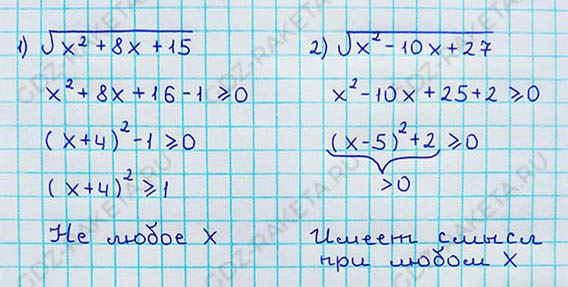 1) √x² + 8x + 15
x² + 8x + 16 - 1 ⩾ 0
(x + 4)² - 1 ⩾ 0
(x + 4)² ⩾ 1
Не любое x
2) √x² - 10x + 27
x² - 10x + 25 + 2 ⩾ 0
(x - 5)² + 2 ⩾ 0
> 0
Имеет смысл
при любом x
GDZ-RAKETA.RU